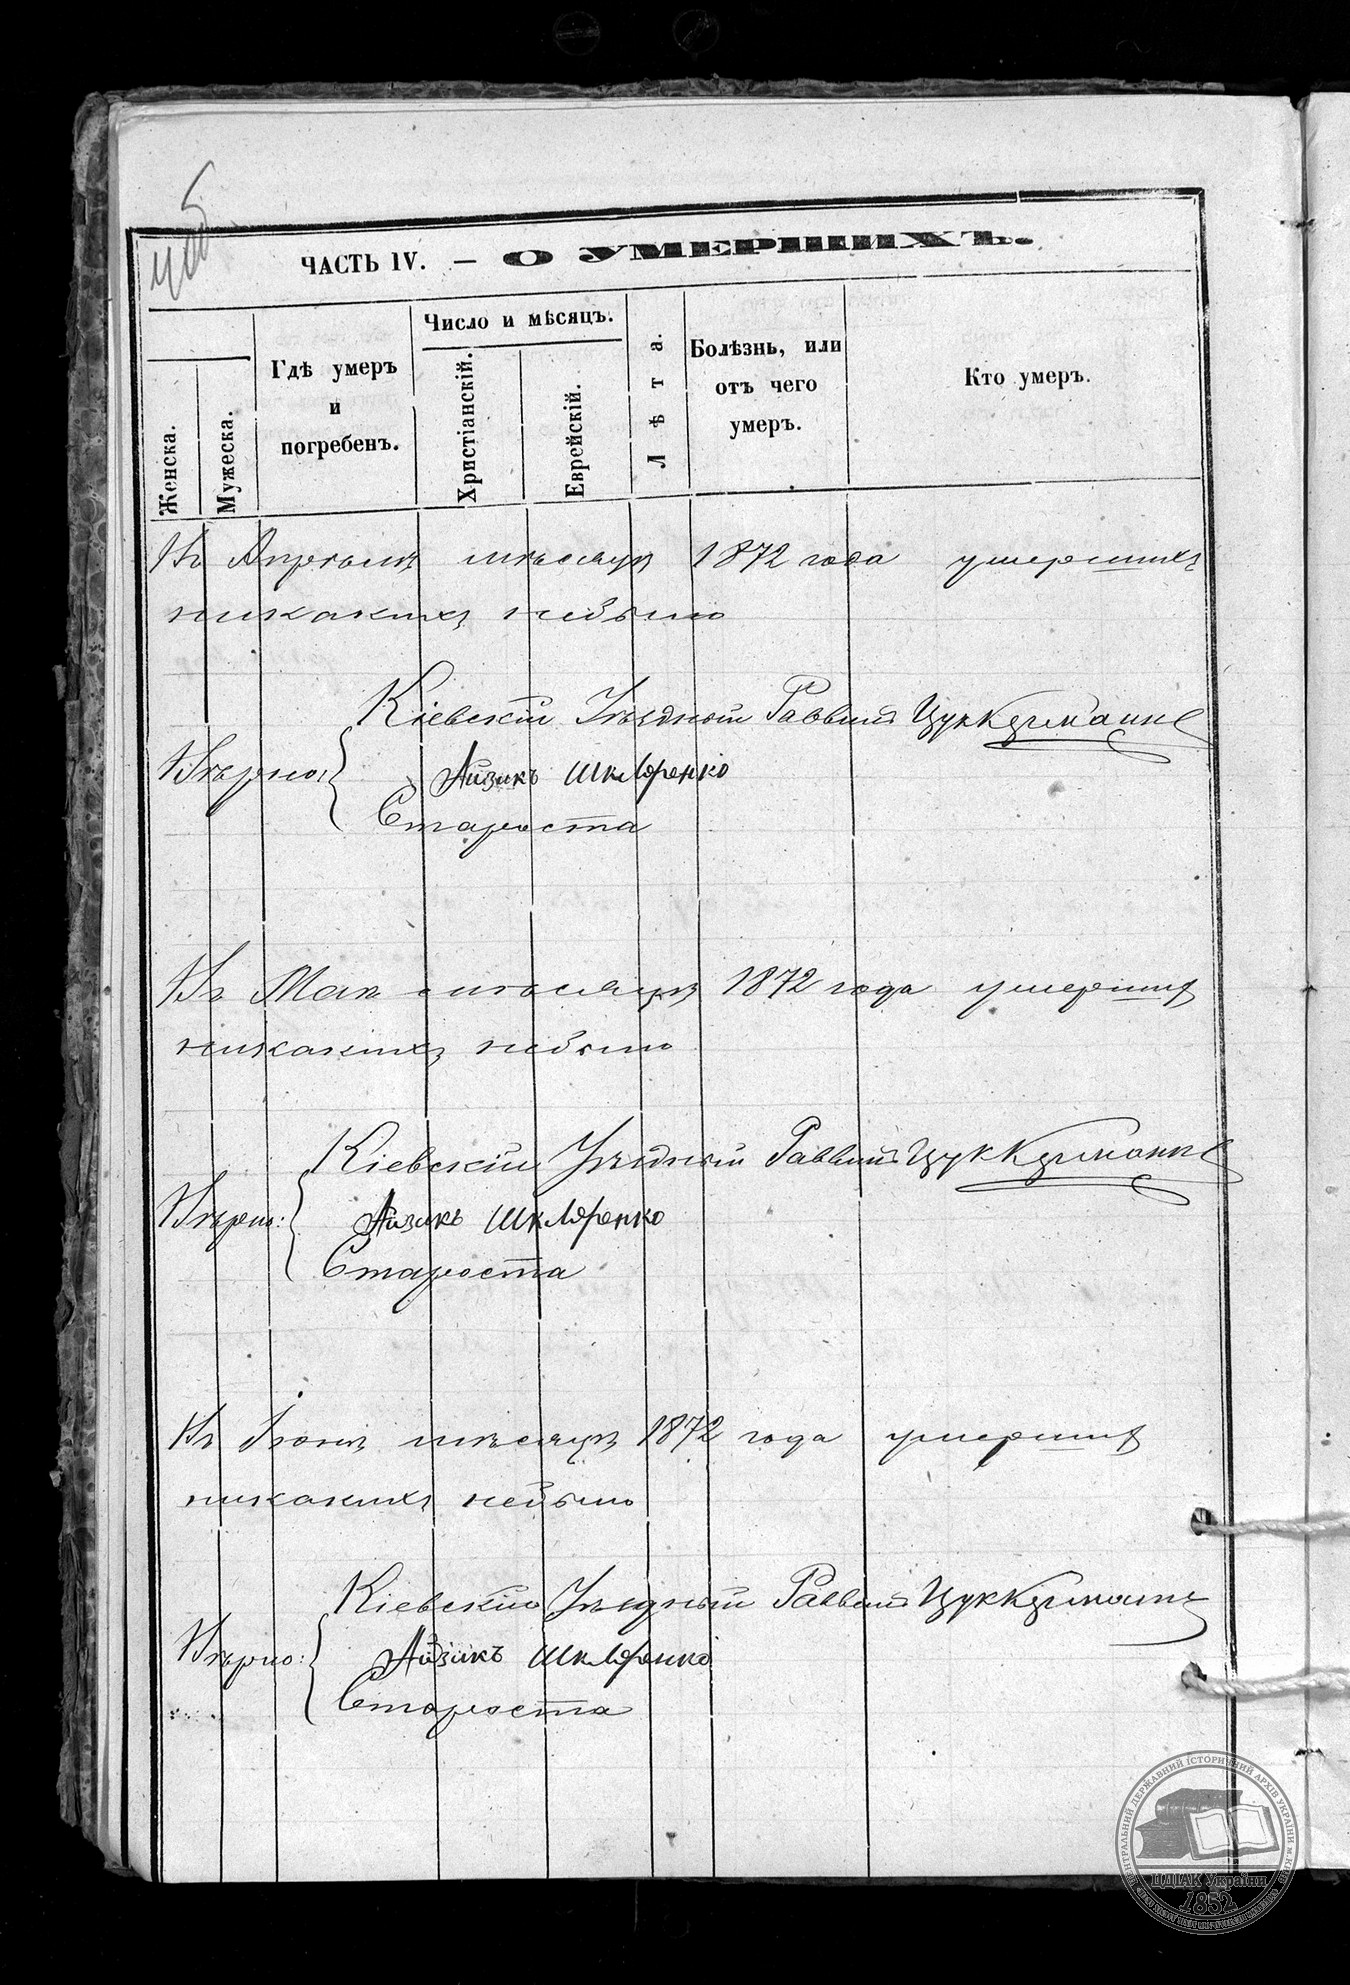 ЧАСТЬ IV. — О УМЕРШИХЪ.
Женска.
Мужеска.
Гдѣ умеръ
и
погребенъ.
Число и мѣсяцъ.
Христіанскій.
Еврейскій.
Лѣта.
Болѣзнь, или
отъ чего
умеръ.
Кто умеръ.
Въ Апрѣлѣ мѣсяцѣ 1872 года умершихъ
никакихъ небыло
Кіевскій Уѣздный Раввинъ Цуккерманъ
Вѣрно: Айзикъ Шкляренко
Староста
Въ Маѣ мѣсяцѣ 1872 года умершихъ
никакихъ небыло
Кіевскій Уѣздный Раввинъ Цуккерманъ
Вѣрно: Айзикъ Шкляренко
Староста
Въ Іюнѣ мѣсяцѣ 1872 года умершихъ
никакихъ небыло
Кіевскій Уѣздный Раввинъ Цуккерманъ
Вѣрно: Айзикъ Шкляренко
Староста
ЦЕНТРАЛЬНИЙ ДЕРЖАВНИЙ ІСТОРИЧНИЙ АРХІВ УКРАЇНИ м. КИЇВ
ЦДІАК України
1852